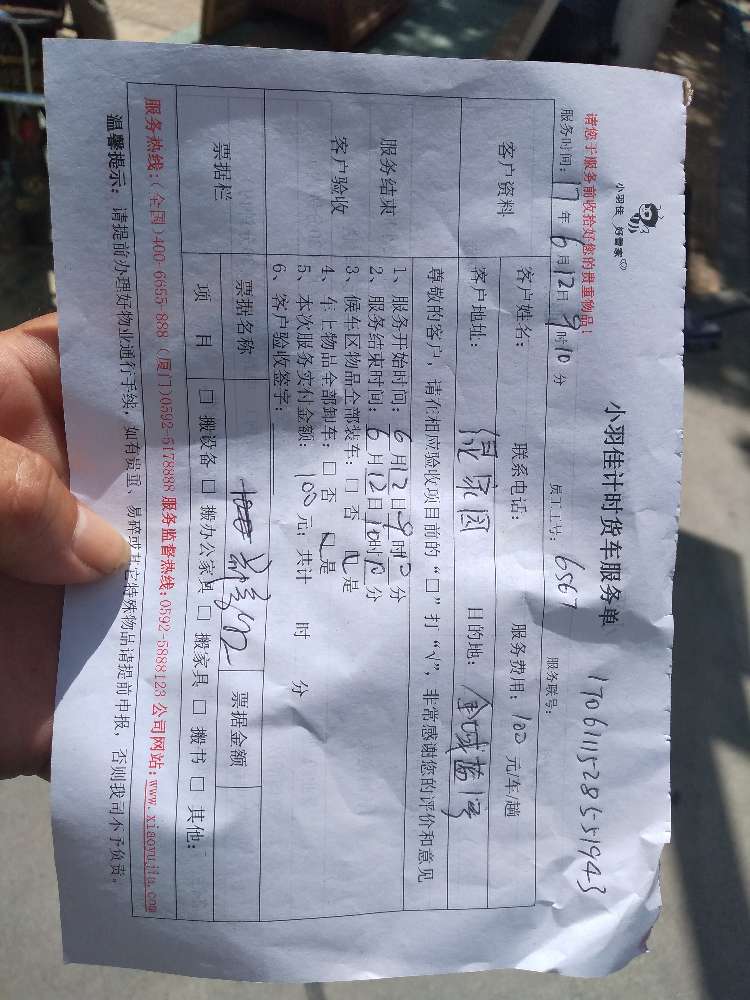 小羽佳 好管家
小羽佳计时货车服务单
1706111528551943
请您于服务前收拾好您的贵重物品!
服务时间: 17年6月12日9时10分 员工工号: 6567 服务联号:
客户资料 客户姓名: 联系电话: 服务费用: 100 元/车/趟
客户地址: 目的地:
尊敬的客户, 请在相应验收项目前的“□”打“√”, 非常感谢您的评价和意见
服务结束
客户验收
1、服务开始时间: 6月12日9时 分
2、服务结束时间: 6月12日10时10分
3、候车区物品全部装车: □ 否 ☑ 是
4、车上物品全部卸车: □ 否 ☑ 是
5、本次服务实付金额: 100 元; 共计 时 分
6、客户验收签字:
票据栏 票据名称 票据金额
项 目 □ 搬设备 □ 搬办公家具 □ 搬家具 □ 搬书 □ 其他:
服务热线:(全国)400-6655-888 (厦门)0592-5178888 服务监督热线:0592-5888123 公司网站:www.xiaoyujia.com
温馨提示: 请提前办理好物业通行手续, 如有贵重、易碎或其它特殊物品请提前申报, 否则我司不予负责。